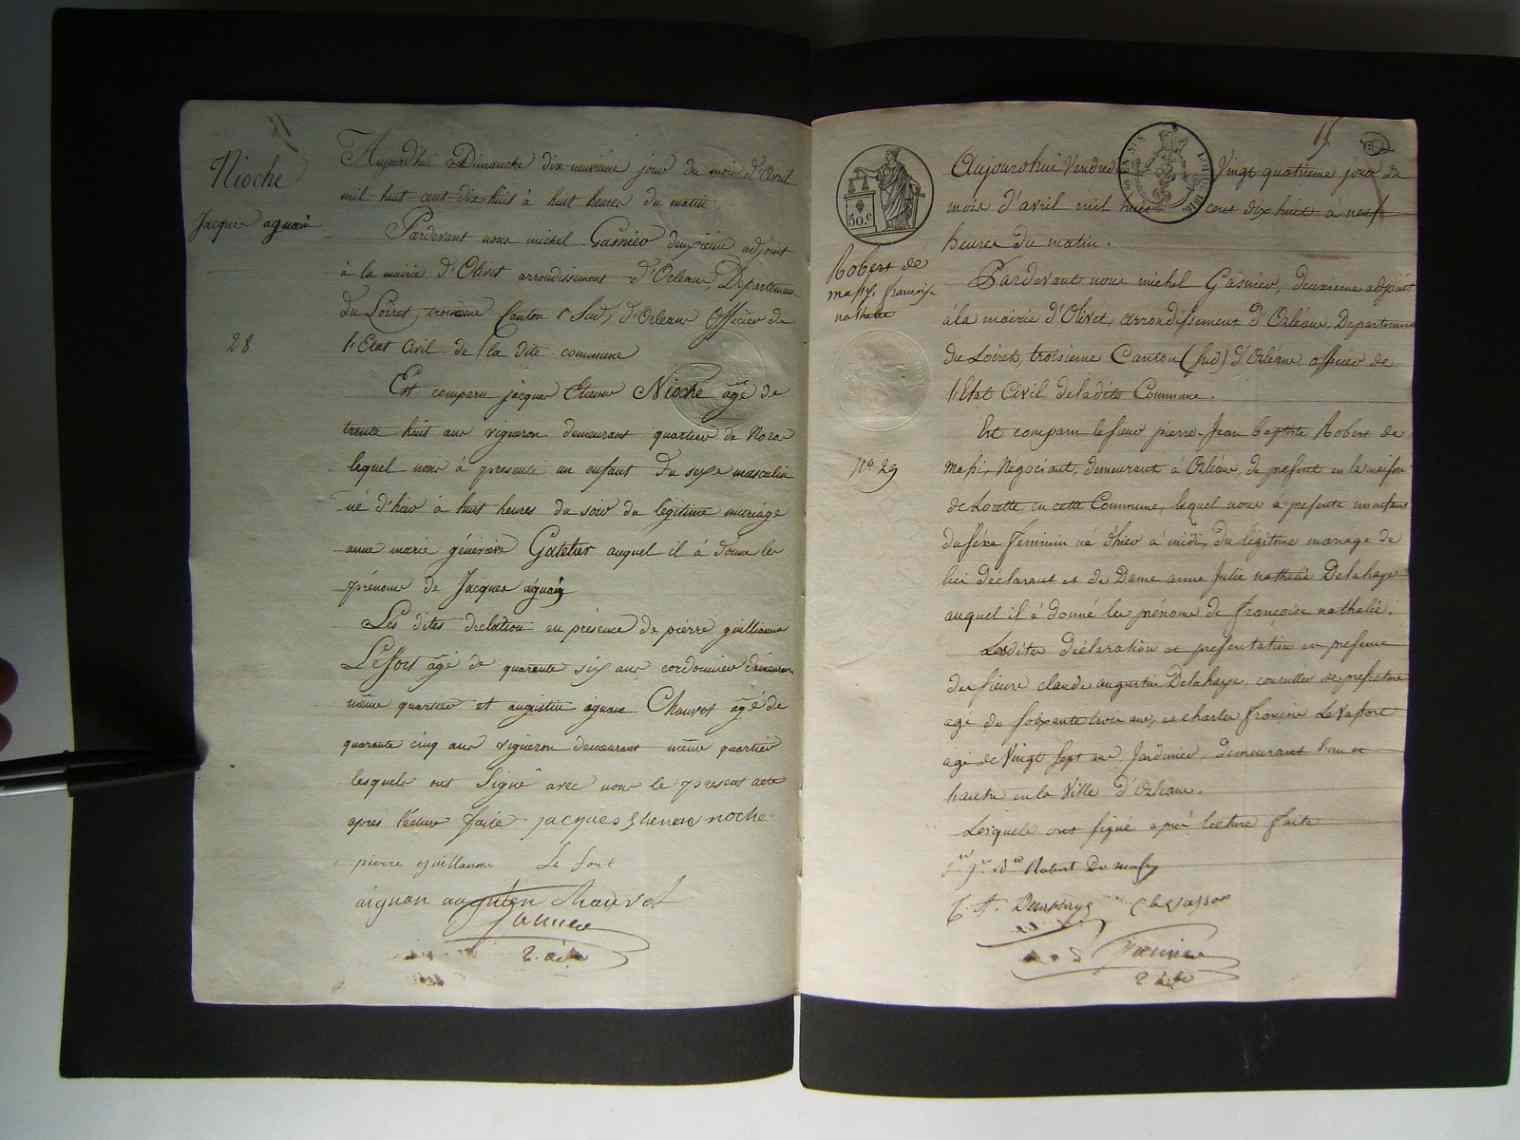 Nioche
Jacques aguain
28
Aujourdhui Dimanche dix-neuvieme jour du mois d'Avril
mil huit cent dix huit à huit heures du matin
Pardevant nous michel Gasnier deuxieme adjoint
à la mairie d'Olivet arrondissement d'Orleans, Departement
Du Loiret, troisieme Canton Sud, d'Orleans Officier de
l'Etat Civil de la dite commune
Est comparu jacques Etienne Nioche âgé de
trente huit ans vigneron demeurant quartier de
lequel nous à presenté un enfant du sexe masculin
né d'hier à huit heures du soir du légitime mariage
anne marie généviève auquel il à donné les
prénoms de Jacques aguain
Les dites declation en présence de pierre guillaume
Lefort âgé de quarante six ans cordonnier demeurant
même quartier et augustin aguain Chauvot âgé de
quarante cinq ans vigneron demeurant même quartier
lesquels ont Signé avec nous le present acte
apres lecture faite jacques Etienne noche
pierre guillaume Le fort
aignan augusten Chauvot
Gasnier
2. adj
15
50.c
Robert de
massy, françoise
nathalie
No. 29
Aujourdhui Vendredi Vingt quatrieme jour du
mois d'avril mil huit cent dix huit à neuf
heures du matin.
Pardevant nous michel Gasnier, deuxieme adjoint
à la mairie d'Olivet, arrondissement d'Orléans, Departement
du Loiret, troisieme Canton (sud) d'Orléans officier de
l'Etat Civil de ladite Commune.
Est comparu le sieur pierre Jean baptiste Robert de
massi, Négociant, demeurant à Orléans, de present en la maison
de Lorette en cette Commune, lequel nous a presenté un enfant
du sexe féminin né d'hier à midi, du légitime mariage de
lui déclarant et de Dame anne Julie nathalie Delahaye
auquel il à donné les prénoms de françoise nathalie.
Lesdites déclaration et presentation en presence
des sieurs claude augustin Delahaye, conseiller de prefecture
agé de soixante trois ans, et charles françois Levassort
agé de Vingt sept ans Jardinier, demeurant tous
en la Ville d'Orléans.
Lesquels ont signé après lecture faite
Robert De massy
C. A. Delahaye C Levassor
Gasnier
2 adj